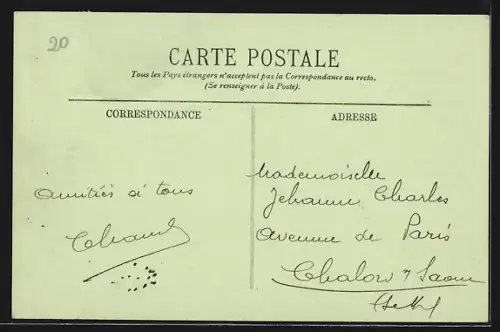 20
CARTE POSTALE
Tous les Pays étrangers n'acceptent pas la Correspondance au recto.
(Se renseigner à la Poste).
CORRESPONDANCE
ADRESSE
amitiés à tous
Mademoiselle
Jehanne Charles
Avenue de Paris
Chalon s/ Saone